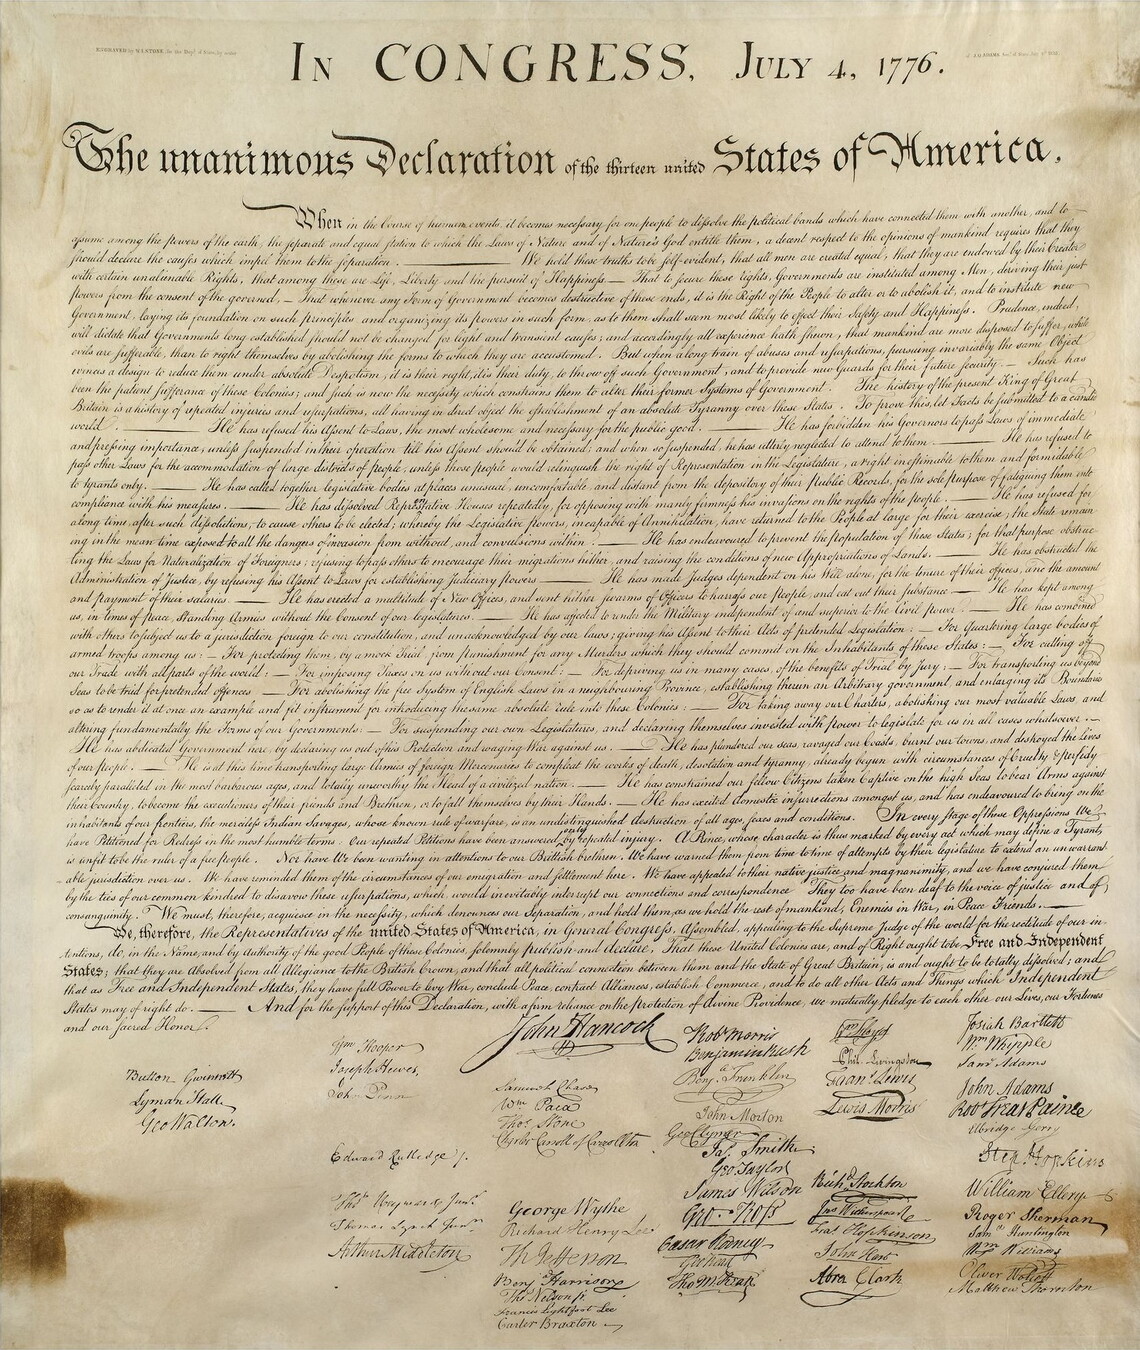 ENGRAVED by W.I.STONE, for the Dept. of State, by order
of J.Q.ADAMS, Sec. of State, July 4th 1823.
In CONGRESS, July 4, 1776.
The unanimous Declaration of the thirteen united States of America.
When in the Course of human events, it becomes necessary for one people to dissolve the political bands which have connected them with another, and to
assume among the powers of the earth, the separate and equal station to which the Laws of Nature and of Nature's God entitle them, a decent respect to the opinions of mankind requires that they
should declare the causes which impel them to the separation. — We hold these truths to be self-evident, that all men are created equal, that they are endowed by their Creator
with certain unalienable Rights, that among these are Life, Liberty and the pursuit of Happiness.— That to secure these rights, Governments are instituted among Men, deriving their just
powers from the consent of the governed, — That whenever any Form of Government becomes destructive of these ends, it is the Right of the People to alter or to abolish it, and to institute new
Government, laying its foundation on such principles and organizing its powers in such form, as to them shall seem most likely to effect their Safety and Happiness. Prudence, indeed,
will dictate that Governments long established should not be changed for light and transient causes; and accordingly all experience hath shewn, that mankind are more disposed to suffer, while
evils are sufferable, than to right themselves by abolishing the forms to which they are accustomed. But when a long train of abuses and usurpations, pursuing invariably the same Object
evinces a design to reduce them under absolute Despotism, it is their right, it is their duty, to throw off such Government, and to provide new Guards for their future security.— Such has
been the patient sufferance of these Colonies; and such is now the necessity which constrains them to alter their former Systems of Government. The history of the present King of Great
Britain is a history of repeated injuries and usurpations, all having in direct object the establishment of an absolute Tyranny over these States. To prove this, let Facts be submitted to a candid
world. — He has refused his Assent to Laws, the most wholesome and necessary for the public good. — He has forbidden his Governors to pass Laws of immediate
and pressing importance, unless suspended in their operation till his Assent should be obtained; and when so suspended, he has utterly neglected to attend to them. — He has refused to
pass other Laws for the accommodation of large districts of people, unless those people would relinquish the right of Representation in the Legislature, a right inestimable to them and formidable
to tyrants only. — He has called together legislative bodies at places unusual, uncomfortable, and distant from the depository of their Public Records, for the sole purpose of fatiguing them into
compliance with his measures. — He has dissolved Representative Houses repeatedly, for opposing with manly firmness his invasions on the rights of the people. — He has refused for
a long time, after such dissolutions, to cause others to be elected; whereby the Legislative powers, incapable of Annihilation, have returned to the People at large for their exercise; the State remain
ing in the mean time exposed to all the dangers of invasion from without, and convulsions within. — He has endeavoured to prevent the population of these States; for that purpose obstruc
ting the Laws for Naturalization of Foreigners; refusing to pass others to encourage their migrations hither, and raising the conditions of new Appropriations of Lands. — He has obstructed the
Administration of Justice, by refusing his Assent to Laws for establishing Judiciary powers — He has made Judges dependent on his Will alone, for the tenure of their offices, and the amount
and payment of their salaries. — He has erected a multitude of New Offices, and sent hither swarms of Officers to harrass our people, and eat out their substance. — He has kept among
us, in times of peace, Standing Armies without the Consent of our legislatures. — He has affected to render the Military independent of and superior to the Civil power. — He has combined
with others to subject us to a jurisdiction foreign to our constitution, and unacknowledged by our laws; giving his Assent to their Acts of pretended Legislation: — For Quartering large bodies of
armed troops among us: — For protecting them, by a mock Trial, from punishment for any Murders which they should commit on the Inhabitants of these States: — For cutting off
our Trade with all parts of the world: — For imposing Taxes on us without our Consent: — For depriving us in many cases, of the benefits of Trial by Jury: — For transporting us beyond
Seas to be tried for pretended offences — For abolishing the free System of English Laws in a neighbouring Province, establishing therein an Arbitrary government, and enlarging its Boundaries
so as to render it at once an example and fit instrument for introducing the same absolute rule into these Colonies: — For taking away our Charters, abolishing our most valuable Laws, and
altering fundamentally the Forms of our Governments: — For suspending our own Legislatures, and declaring themselves invested with power to legislate for us in all cases whatsoever. —
He has abdicated Government here, by declaring us out of his Protection and waging War against us. — He has plundered our seas, ravaged our Coasts, burnt our towns, and destroyed the Lives
of our people. — He is at this time transporting large Armies of foreign Mercenaries to compleat the works of death, desolation and tyranny, already begun with circumstances of Cruelty & perfidy
scarcely paralleled in the most barbarous ages, and totally unworthy the Head of a civilized nation. — He has constrained our fellow Citizens taken Captive on the high Seas to bear Arms against
their Country, to become the executioners of their friends and Brethren, or to fall themselves by their Hands. — He has excited domestic insurrections amongst us, and has endeavoured to bring on the
inhabitants of our frontiers, the merciless Indian Savages, whose known rule of warfare, is an undistinguished destruction of all ages, sexes and conditions. In every stage of these Oppressions We
have Petitioned for Redress in the most humble terms: Our repeated Petitions have been answered only by repeated injury. A Prince, whose character is thus marked by every act which may define a Tyrant,
is unfit to be the ruler of a free people. Nor have We been wanting in attentions to our Brittish brethren. We have warned them from time to time of attempts by their legislature to extend an unwarrant
able jurisdiction over us. We have reminded them of the circumstances of our emigration and settlement here. We have appealed to their native justice and magnanimity, and we have conjured them
by the ties of our common kindred to disavow these usurpations, which, would inevitably interrupt our connections and correspondence They too have been deaf to the voice of justice and of
consanguinity. We must, therefore, acquiesce in the necessity, which denounces our Separation, and hold them, as we hold the rest of mankind, Enemies in War, in Peace Friends. —
We, therefore, the Representatives of the united States of America, in General Congress, Assembled, appealing to the Supreme Judge of the world for the rectitude of our in-
tentions, do, in the Name, and by Authority of the good People of these Colonies, solemnly publish and declare, That these United Colonies are, and of Right ought to be Free and Independent
States; that they are Absolved from all Allegiance to the British Crown, and that all political connection between them and the State of Great Britain, is and ought to be totally dissolved; and
that as Free and Independent States, they have full Power to levy War, conclude Peace, contract Alliances, establish Commerce, and to do all other Acts and Things which Independent
States may of right do. — And for the support of this Declaration, with a firm reliance on the protection of divine Providence, we mutually pledge to each other our Lives, our Fortunes
and our sacred Honor.
Button Gwinnett
Lyman Hall
Geo Walton.
Wm Hooper
Joseph Hewes,
John Penn
Edward Rutledge /.
Thos Heyward Junr.
Thomas Lynch Junr.
Arthur Middleton
John Hancock
Samuel Chase
Wm Paca
Thos Stone
Charles Carroll of Carrollton
George Wythe
Richard Henry Lee
Th Jefferson
Benj Harrison
Thos Nelson jr.
Francis Lightfoot Lee
Carter Braxton
Robt Morris
Benjamin Rush
Benj Franklin
John Morton
Geo Clymer
Jas Smith
Geo Taylor
James Wilson
Geo Ross
Caesar Rodney
Geo Read
Tho M:Kean
Wm Floyd
Phil. Livingston
Frans Lewis
Lewis Morris
Richd Stockton
Jno Witherspoon
Fras Hopkinson
John Hart
Abra Clark
Josiah Bartlett
Wm Whipple
Saml Adams
John Adams
Robt Treat Paine
Elbridge Gerry
Step Hopkins
William Ellery
Roger Sherman
Saml Huntington
Wm Williams
Oliver Wolcott
Matthew Thornton